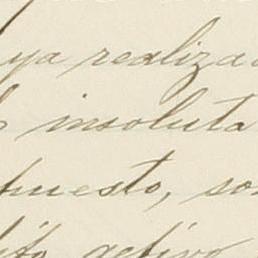 ya realiza
insoluta
puesto, so
activo